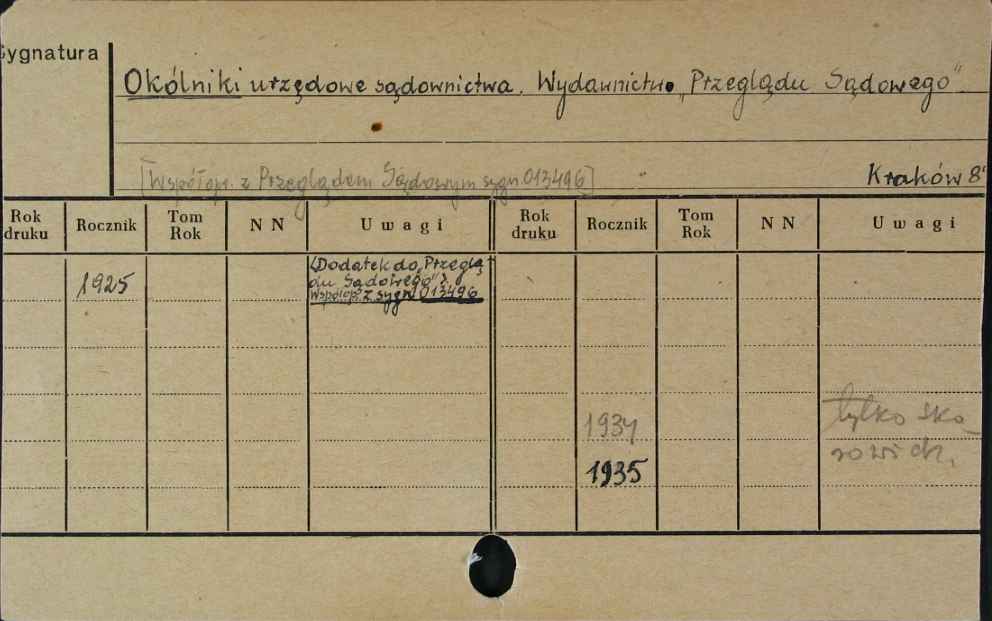 Sygnatura
Okólniki urzędowe sądownictwa. Wydawnictwo „Przeglądu Sądowego"
[Współopr. z Przeglądem Sądowym sygn 013496]
Kraków 8°
Rok druku Rocznik Tom Rok N N Uwagi Rok druku Rocznik Tom Rok N N Uwagi
1925 (Dodatek do „Przeglą
du Sądowego").
Współop. z sygn 013496
1934 tylko sko
rowidz.
1935